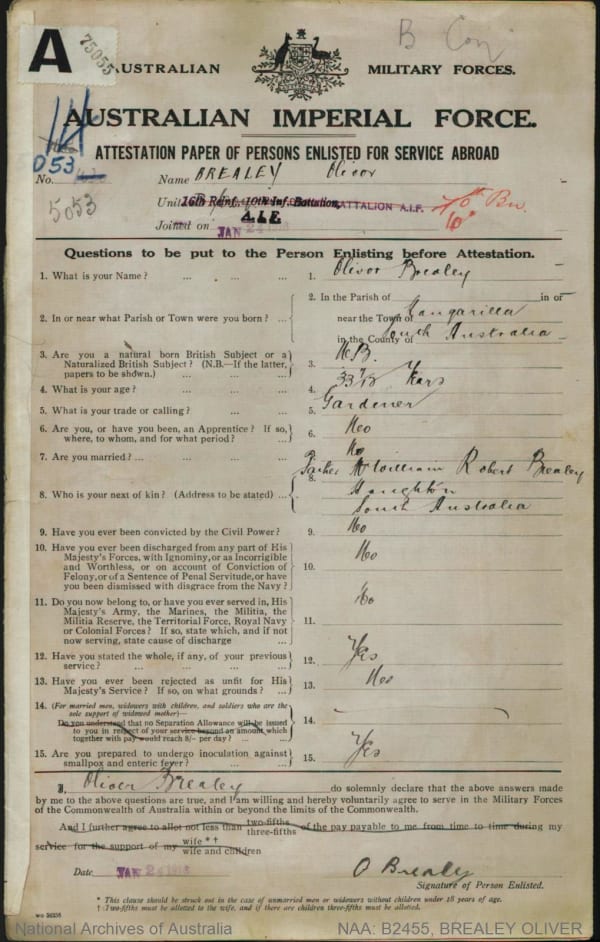 A
75055
B Coy
AUSTRALIAN MILITARY FORCES.
AUSTRALIAN IMPERIAL FORCE.
ATTESTATION PAPER OF PERSONS ENLISTED FOR SERVICE ABROAD
053
No. Name BREALEY Oliver
5053
Unit 16th Reinf. 10th Inf. Battalion, BATTALION A.I.F.
A.I.F.
10th Bn.
Joined on JAN 24 1916
Questions to be put to the Person Enlisting before Attestation.
1. What is your Name? ... ... ... 1. Oliver Brealey
2. In or near what Parish or Town were you born? ... 2. In the Parish of Kangarilla in or
near the Town of
in the County of South Australia
3. Are you a natural born British Subject or a
Naturalized British Subject? (N.B.—If the latter,
papers to be shown.) ... ... 3. N.B.
4. What is your age? ... ... ... 4. 33 Years
5. What is your trade or calling? ... ... 5. Gardener
6. Are you, or have you been, an Apprentice? If so,
where, to whom, and for what period? ... 6. No
7. Are you married? ... ... ... No
8. Who is your next of kin? (Address to be stated) ... 8. Father William Robert Brealey
Houghton
South Australia
9. Have you ever been convicted by the Civil Power? 9. No
10. Have you ever been discharged from any part of His
Majesty's Forces, with Ignominy, or as Incorrigible
and Worthless, or on account of Conviction of
Felony, or of a Sentence of Penal Servitude, or have
you been dismissed with disgrace from the Navy? 10. No
11. Do you now belong to, or have you ever served in, His
Majesty's Army, the Marines, the Militia, the
Militia Reserve, the Territorial Force, Royal Navy
or Colonial Forces? If so, state which, and if not
now serving, state cause of discharge 11. No
12. Have you stated the whole, if any, of your previous
service? ... ... ... 12. Yes
13. Have you ever been rejected as unfit for His
Majesty's Service? If so, on what grounds? ... 13. No
14. (For married men, widowers with children, and soldiers who are the
sole support of widowed mother)—
Do you understand that no Separation Allowance will be issued
to you in respect of your service beyond an amount which
together with pay would reach 8/- per day? ... ... 14.
15. Are you prepared to undergo inoculation against
smallpox and enteric fever? ... ... 15. Yes
I, Oliver Brealey do solemnly declare that the above answers made
by me to the above questions are true, and I am willing and hereby voluntarily agree to serve in the Military Forces
of the Commonwealth of Australia within or beyond the limits of the Commonwealth.
And I further agree to allot not less than two-fifths three-fifths of the pay payable to me from time to time during my
service for the support of my wife * † wife and children
Date JAN 24 1916 O Brealey
Signature of Person Enlisted.
* This clause should be struck out in the case of unmarried men or widowers without children under 18 years of age.
† Two-fifths must be allotted to the wife, and if there are children three-fifths must be allotted.
National Archives of Australia NAA: B2455, BREALEY OLIVER